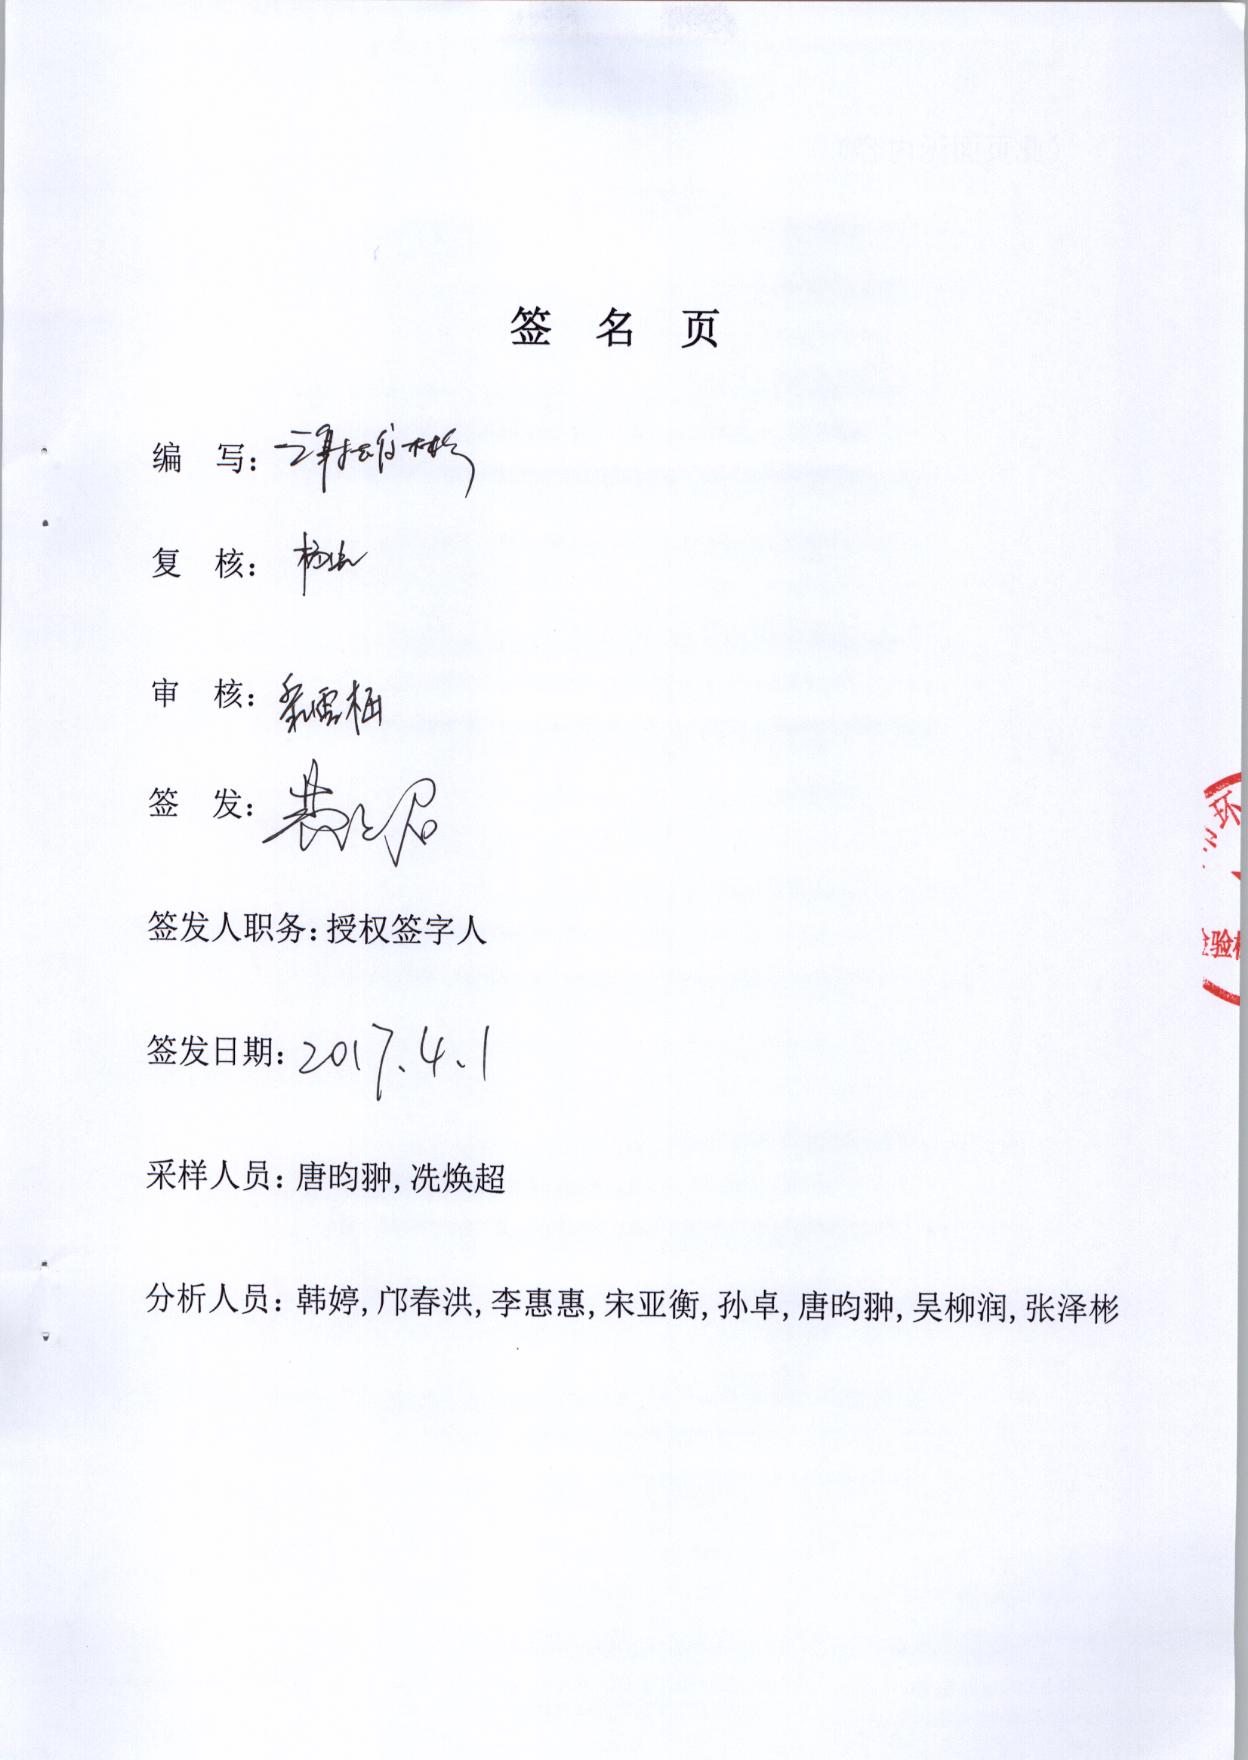 签 名 页
编 写：
复 核：
审 核：
签 发：
签发人职务：授权签字人
签发日期：2017.4.1
采样人员：唐昀翀，冼焕超
分析人员：韩婷，邝春洪，李惠惠，宋亚衡，孙卓，唐昀翀，吴柳润，张泽彬
环
验